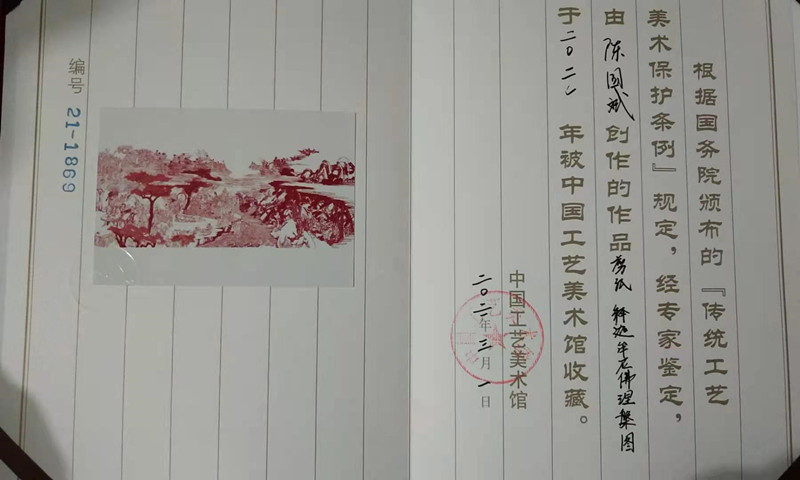 根据国务院颁布的『传统工艺
美术保护条例』规定，经专家鉴定，
由陈国斌创作的作品剪纸 释迦牟尼佛涅槃图
于二〇二一年被中国工艺美术馆收藏。
中国工艺美术馆
二〇二一年三月一日
编号 21-1869